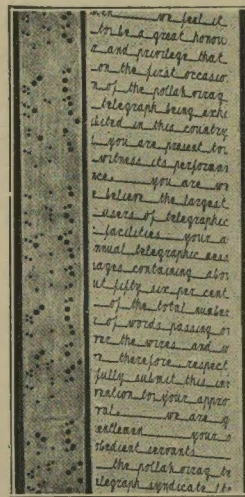 when we feel it
to be a great honou
r and privilege that
on the first occasio
n of the pollak virag
telegraph being exhi
bited in this country
you are present to
witness its performa
nce you are we
believe the largest
users of telegraphic
facilities your a
nnual telegraphic mess
ages containing abo
ut fifty six per cent
of the total number
of words passing o
ver the wires and w
e therefore respect
fully submit this inv
vention to your appro
val we are g
entlemen your o
bedient servants
the pollak virag te
legraph syndicate